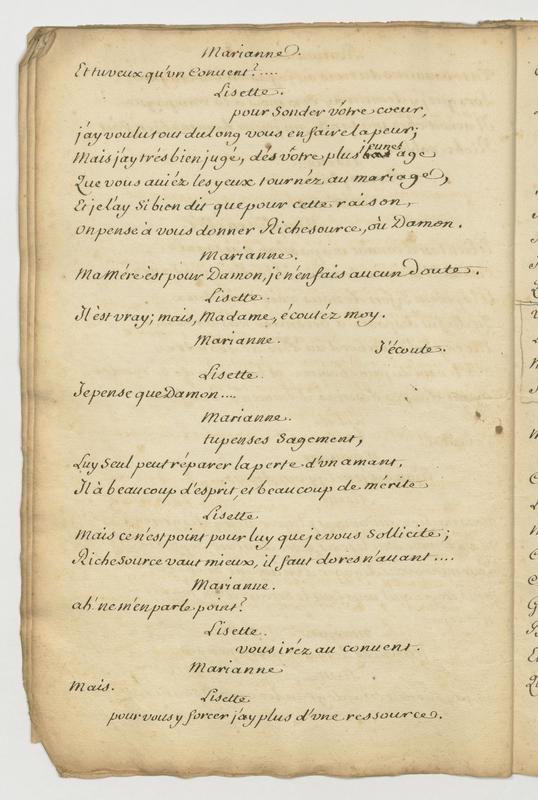 Marianne.
Et tu veux qu'vn Conuent?....
Lisette.
pour Sonder vôtre coeur,
j'ay voulu tout du long vous en faire la peur;
Mais j'ay trés bien jugé, dés vôtre plus jeune age
Que vous auiéz les yeux tournéz au mariagé,
Et je l'ay Si bien dit que pour cette raison,
on pense à vous donner Richesource, où Damon.
Marianne.
Ma Mére èst pour Damon, je n'en fais aucun Doute.
Lisette.
Il èst vray; mais, Madame, écoutéz moy.
Marianne.
J'écoute.
Lisette.
Je pense que Damon....
Marianne.
tu penses Sagement,
Luy Seul peut réparer la perte d'vn amant,
Il à beaucoup d'esprit, et beaucoup de mérite
Lisette
Mais ce n'est point pour luy que je vous Sollicite;
Richesource vaut mieux, il faut doresnauant....
Marianne.
ah! ne m'en parle point?
Lisette.
vous iréz au conuent.
Marianne
Mais.
Lisette
pour vous y forcer j'ay plus d'vne ressource.